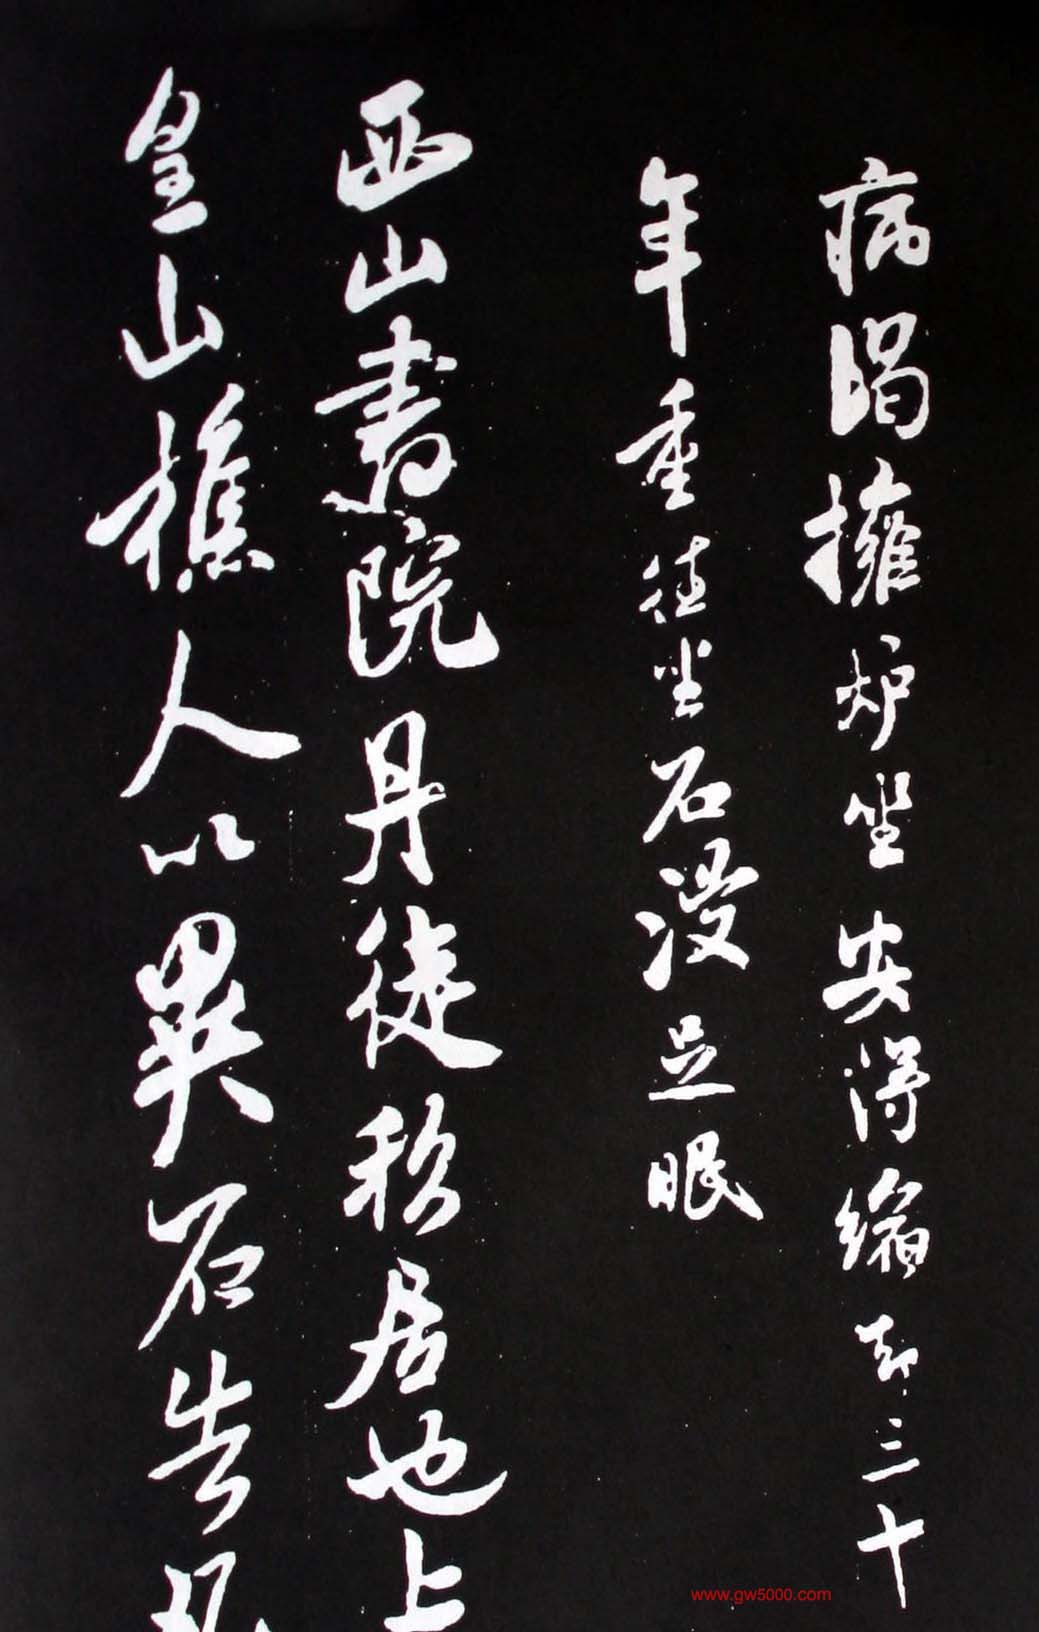 病暍擁炉坐安得縮却三十
年重往坐石浸足眠
西山書院丹徒私居也上
皇山樵人以異石告凡
www.gw5000.com